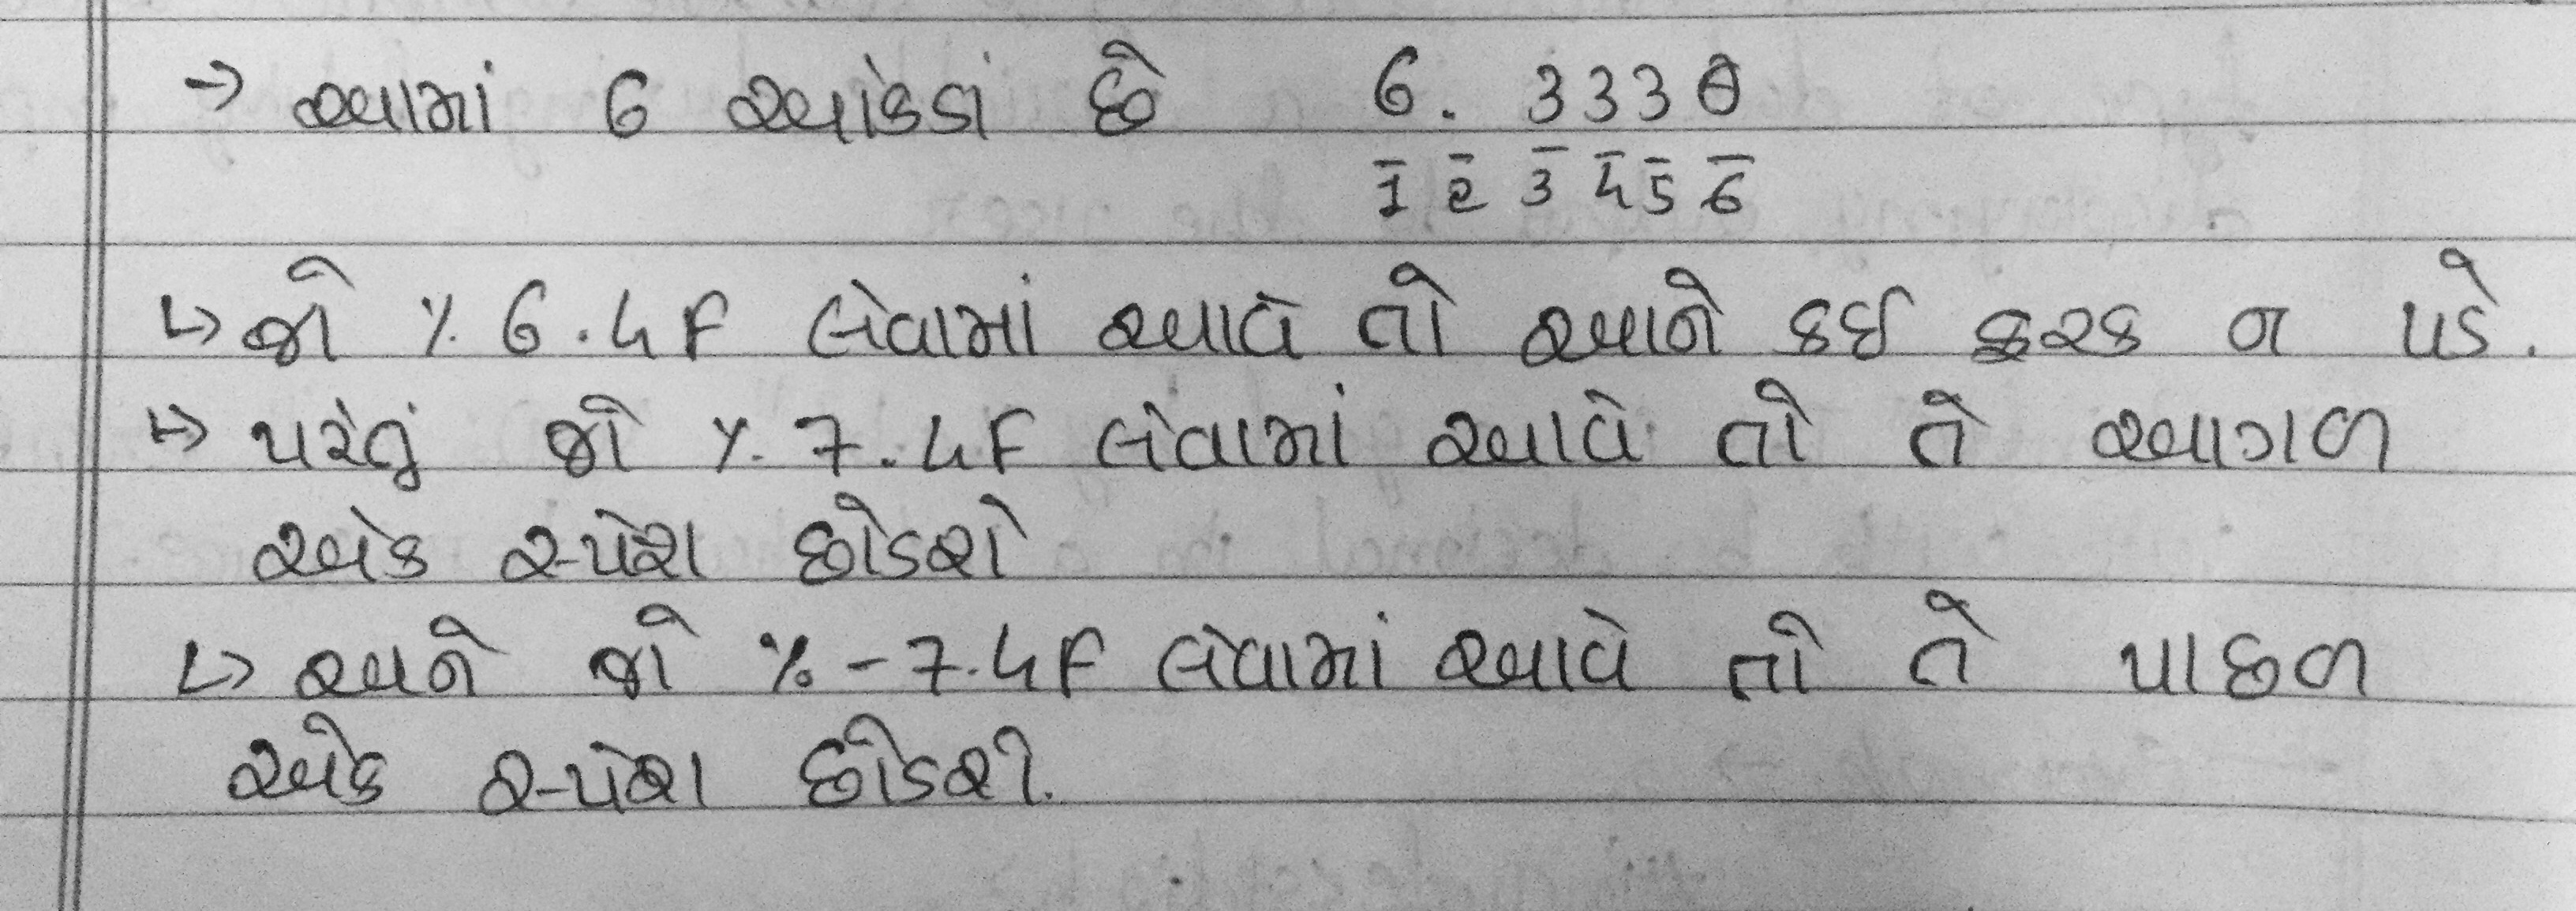 → આમાં 6 આંકડાં છે 6. 3330
1 2 3 4 5 6
↳ જો %6.4f લેવામાં આવે તો આને કઈ ફરક ન પડે.
↳ પરંતું જો %.7.4f લેવામાં આવે તો તે આગળ
એક સ્પેશ છોડશે
↳ અને જો %-7.4f લેવામાં આવે તો તે પાછળ
એક સ્પેશ છોડશે.